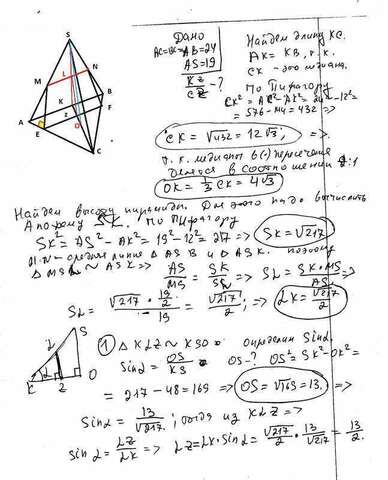 S
L
N
M
K
B
A
Z
F
E
O
C
Дано
AC=BC=AB=24
AS=19
KZ/CZ - ?
Найдем длину KC.
AK = KB, т.к.
CK - это медиана.
По Пифагору
CK² = AC² - AK² = 24² - 12² =
= 576 - 144 = 432 =>
CK = √432 = 12√3; =>
т.к. медианы в (·) пересечения
делятся в соотношении 2:1
OK = 1/3 CK = 4√3
Найдем высоту пирамиды. Для этого надо вычислить
Апофему SK. По Пифагору
SK² = AS² - AK² = 19² - 12² = 217 => SK = √217
MN - средняя линия △ASB и △ASK. поэтому
△MSL ~ ASK => AS/MS = SK/SL => SL = SK·MS/AS =>
SL = √217 · 19/2 / 19 = √217/2; => LK = √217/2
S
L
K
Z
O
① △KLZ ~ KSO. Определим Sinα.
Sinα = OS/KS OS - ? OS² = SK² - OK² =
= 217 - 48 = 169 => OS = √169 = 13. =>
Sinα = 13/√217; тогда из KLZ =>
Sinα = LZ/LK => LZ = LK·Sinα = √217/2 · 13/√217 = 13/2.